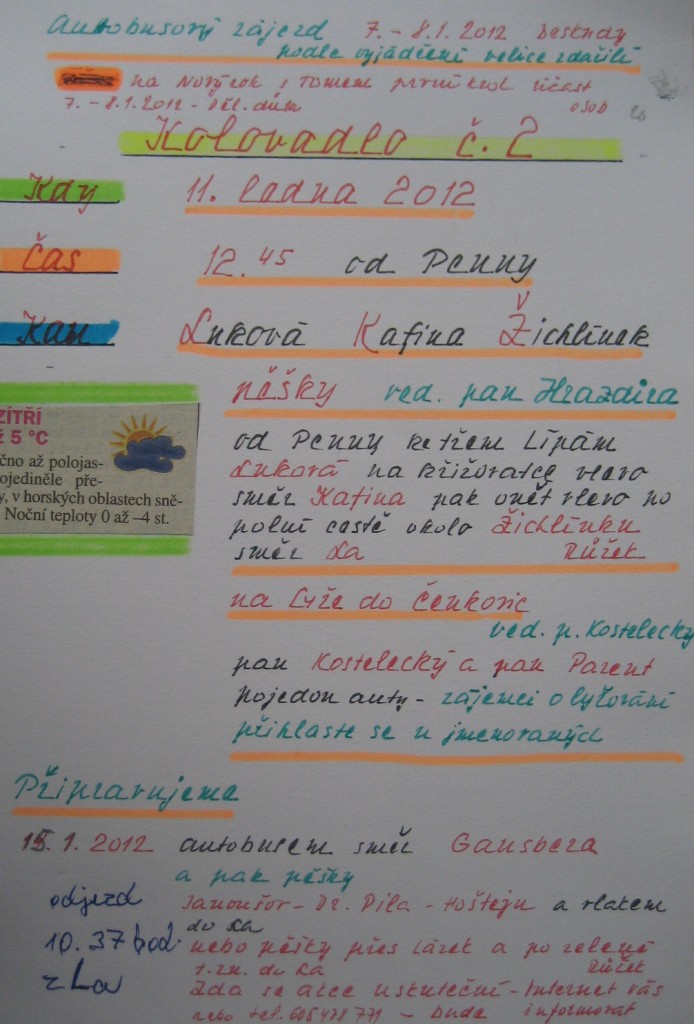 Autobusový zájezd 7. - 8.1. 2012 Beskydy
podle vyjádření velice zdařilí
na Nový rok s Tomem první krok účast
7. - 8.1.2012 - Děl. dům osob
Kolovadlo č. 2
Kdy 11. ledna 2012
Čas 12.45 od Penny
Kam Luková Kafina Žichlínek
pěšky ved. pan Hrazdira
ZÍTŘÍ
ž 5 °C
čno až polojas-
ojediněle pře-
y, v horských oblastech sně-
Noční teploty 0 až –4 st.
od Penny ke třem Lípám
Luková na křižovatce vlevo
směr Kafina pak opět vlevo po
polní cestě okolo Žichlínku
směr La Růžek
na Lyže do Čenkovic
ved. p. Kostelecký
pan Kostelecký a pan Parent
pojedou auty - zájemci o lyžování
přihlaste se u jmenovaných
Připravujeme
15. 1. 2012 autobusem směr Gansberg
a pak pěšky
odjezd Janoušov - Dr. Pila - Hoštejn a vlakem
do La
10.37 hod. nebo pěšky přes Lázek a po zelené
t. zn. do La Růžek
z La Zda se akce uskuteční - Internet vás
nebo tel. 605 478 771 - bude informovat